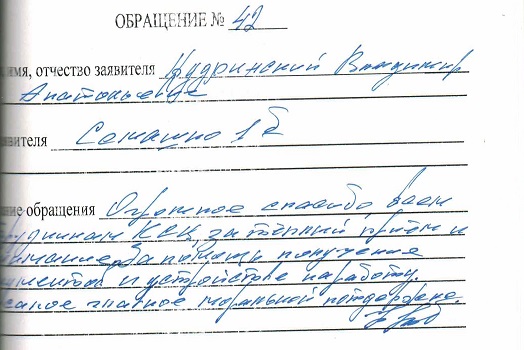 ОБРАЩЕНИЕ № 42
имя, отчество заявителя Кудринский Владимир
Анатольевич
явителя Семашко 1 б
ние обращения Огромное спасибо всем
трудникам КСЦ за теплый приём и
нимание. За помощь получения
ументов и устройстве на работу.
самое главное моральной потдержке.